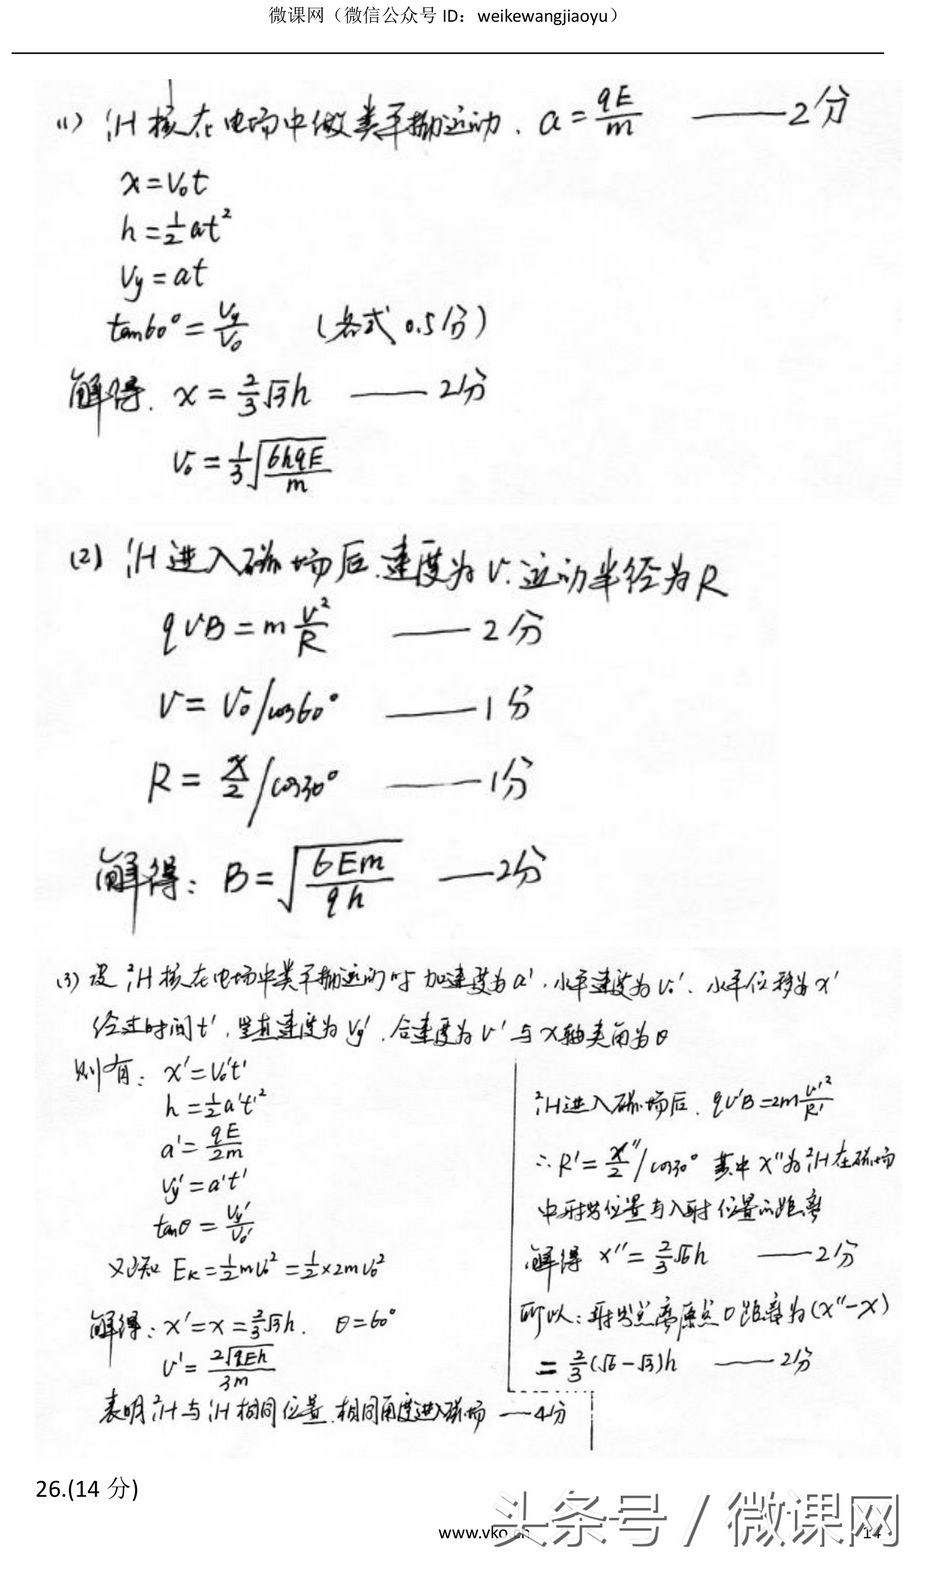 微课网（微信公众号 ID：weikewangjiaoyu）
(1) ¹₁H核在电场中做类平抛运动. a=qE/m ——2分
x=v₀t
h=½at²
Vy=at
tan60°=Vy/V₀ (各式0.5分)
解得. x=⅔√3h ——2分
v₀=⅓√(6hqE/m)
(2) ¹₁H进入磁场后.速度为v.运动半径为R
qvB=mv²/R ——2分
v=v₀/cos60° ——1分
R=x/2/cos30° ——1分
解得：B=√(6Em/qh) ——2分
(3) 设²₁H核在电场中类平抛运动时加速度为a'.水平速度为v₀'.水平位移为x'
经过时间t'.竖直速度为Vy'.合速度为v'与x轴夹角为θ
则有：x'=v₀'t'
h=½a't'²
a'=qE/2m
Vy'=a't'
tanθ=Vy'/V₀'
又知 Eк=½mv₀²=½×2mv₀²
解得：x'=x=⅔√3h. θ=60°
v'=2√(qEh)/3m
表明²₁H与¹₁H相同位置.相同角度进入磁场 —4分
²₁H进入磁场后. qv'B=2mv'²/R'
∴R'=x''/2/cos30° 其中x''为²₁H在磁场
中射出位置与入射位置的距离
解得 x''=⅔√6h ——2分
所以：射出点离原点O距离为(x''-x)
=⅔(√6-√3)h ——2分
26.(14 分)
头条号 / 微课网
www.vko.cn
14